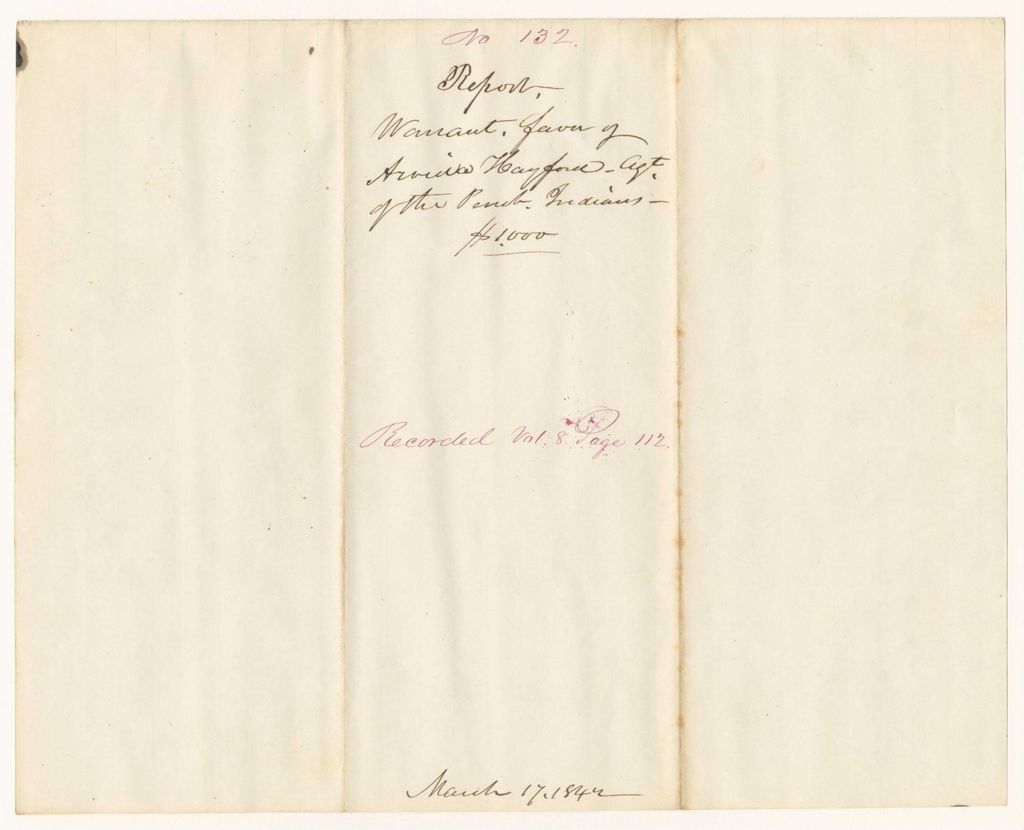 No 132.
Report,
Warrant, favor of
Arvida Hayford - Agt.
of the Penob. Indians -
$1.000
Recorded Vol. 8 Page 112.
March 17. 1842